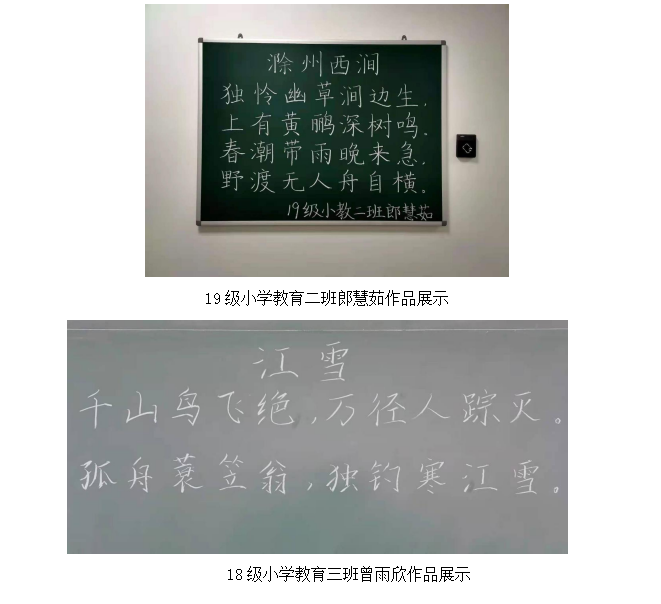 滁州西涧
独怜幽草涧边生,
上有黄鹂深树鸣.
春潮带雨晚来急,
野渡无人舟自横。
19级小教二班郎慧茹
19级小学教育二班郎慧茹作品展示
江雪
千山鸟飞绝,万径人踪灭。
孤舟蓑笠翁,独钓寒江雪。
18级小学教育三班曾雨欣作品展示